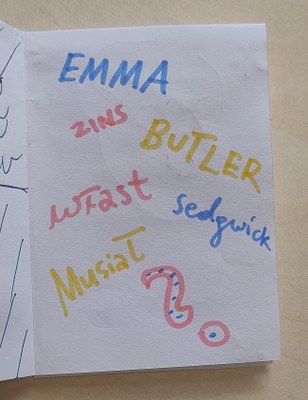 EMMA
ZINS
BUTLER
wFast
Sedgwick
Musiat
?